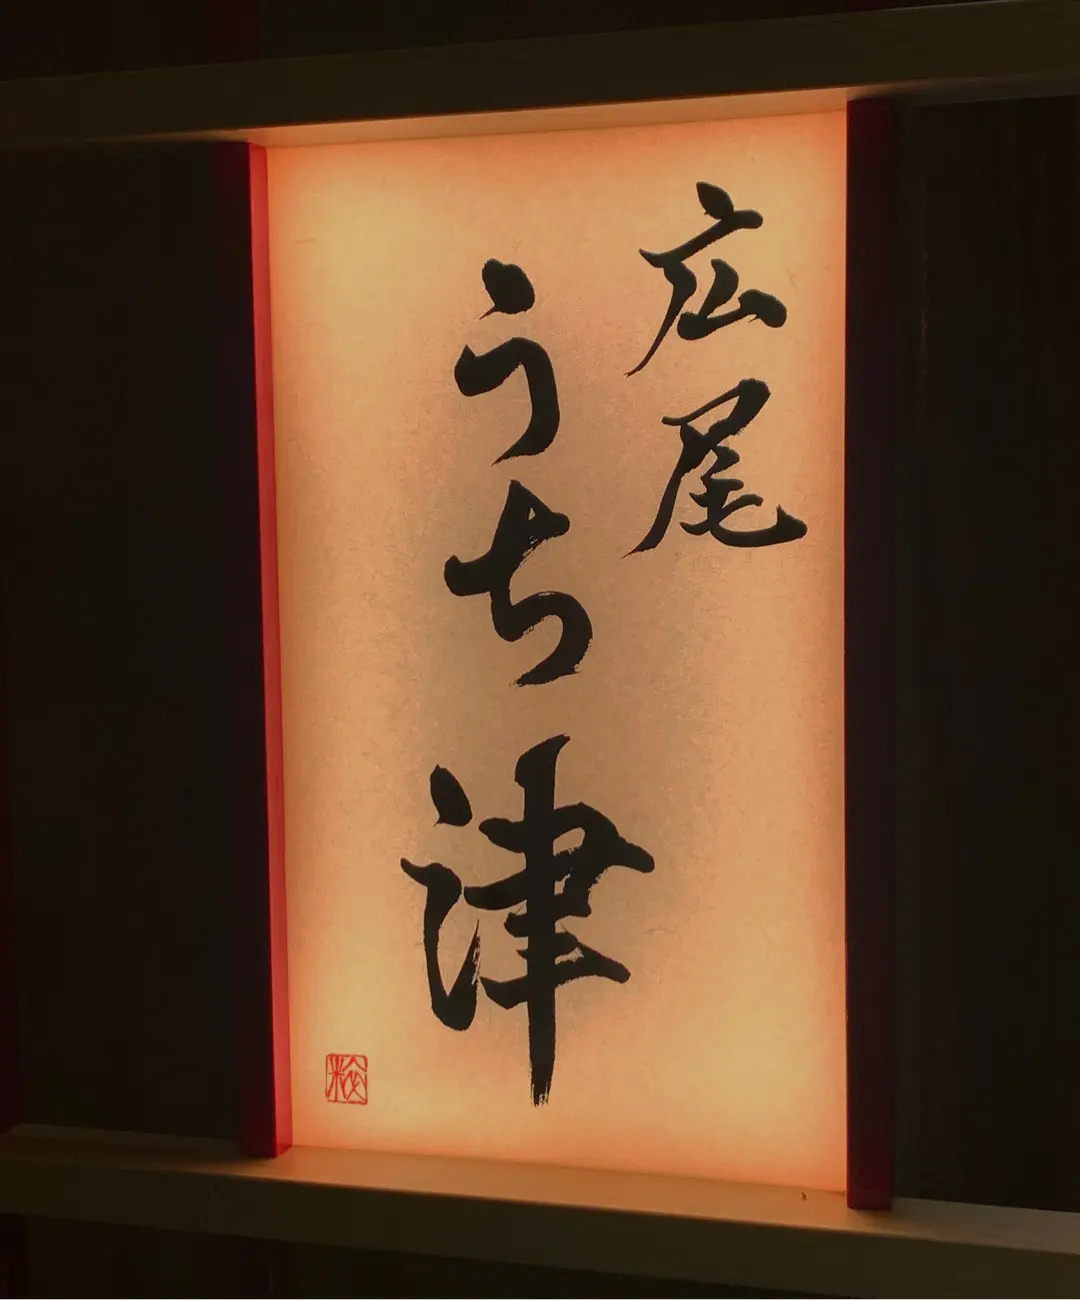 広尾
うち津